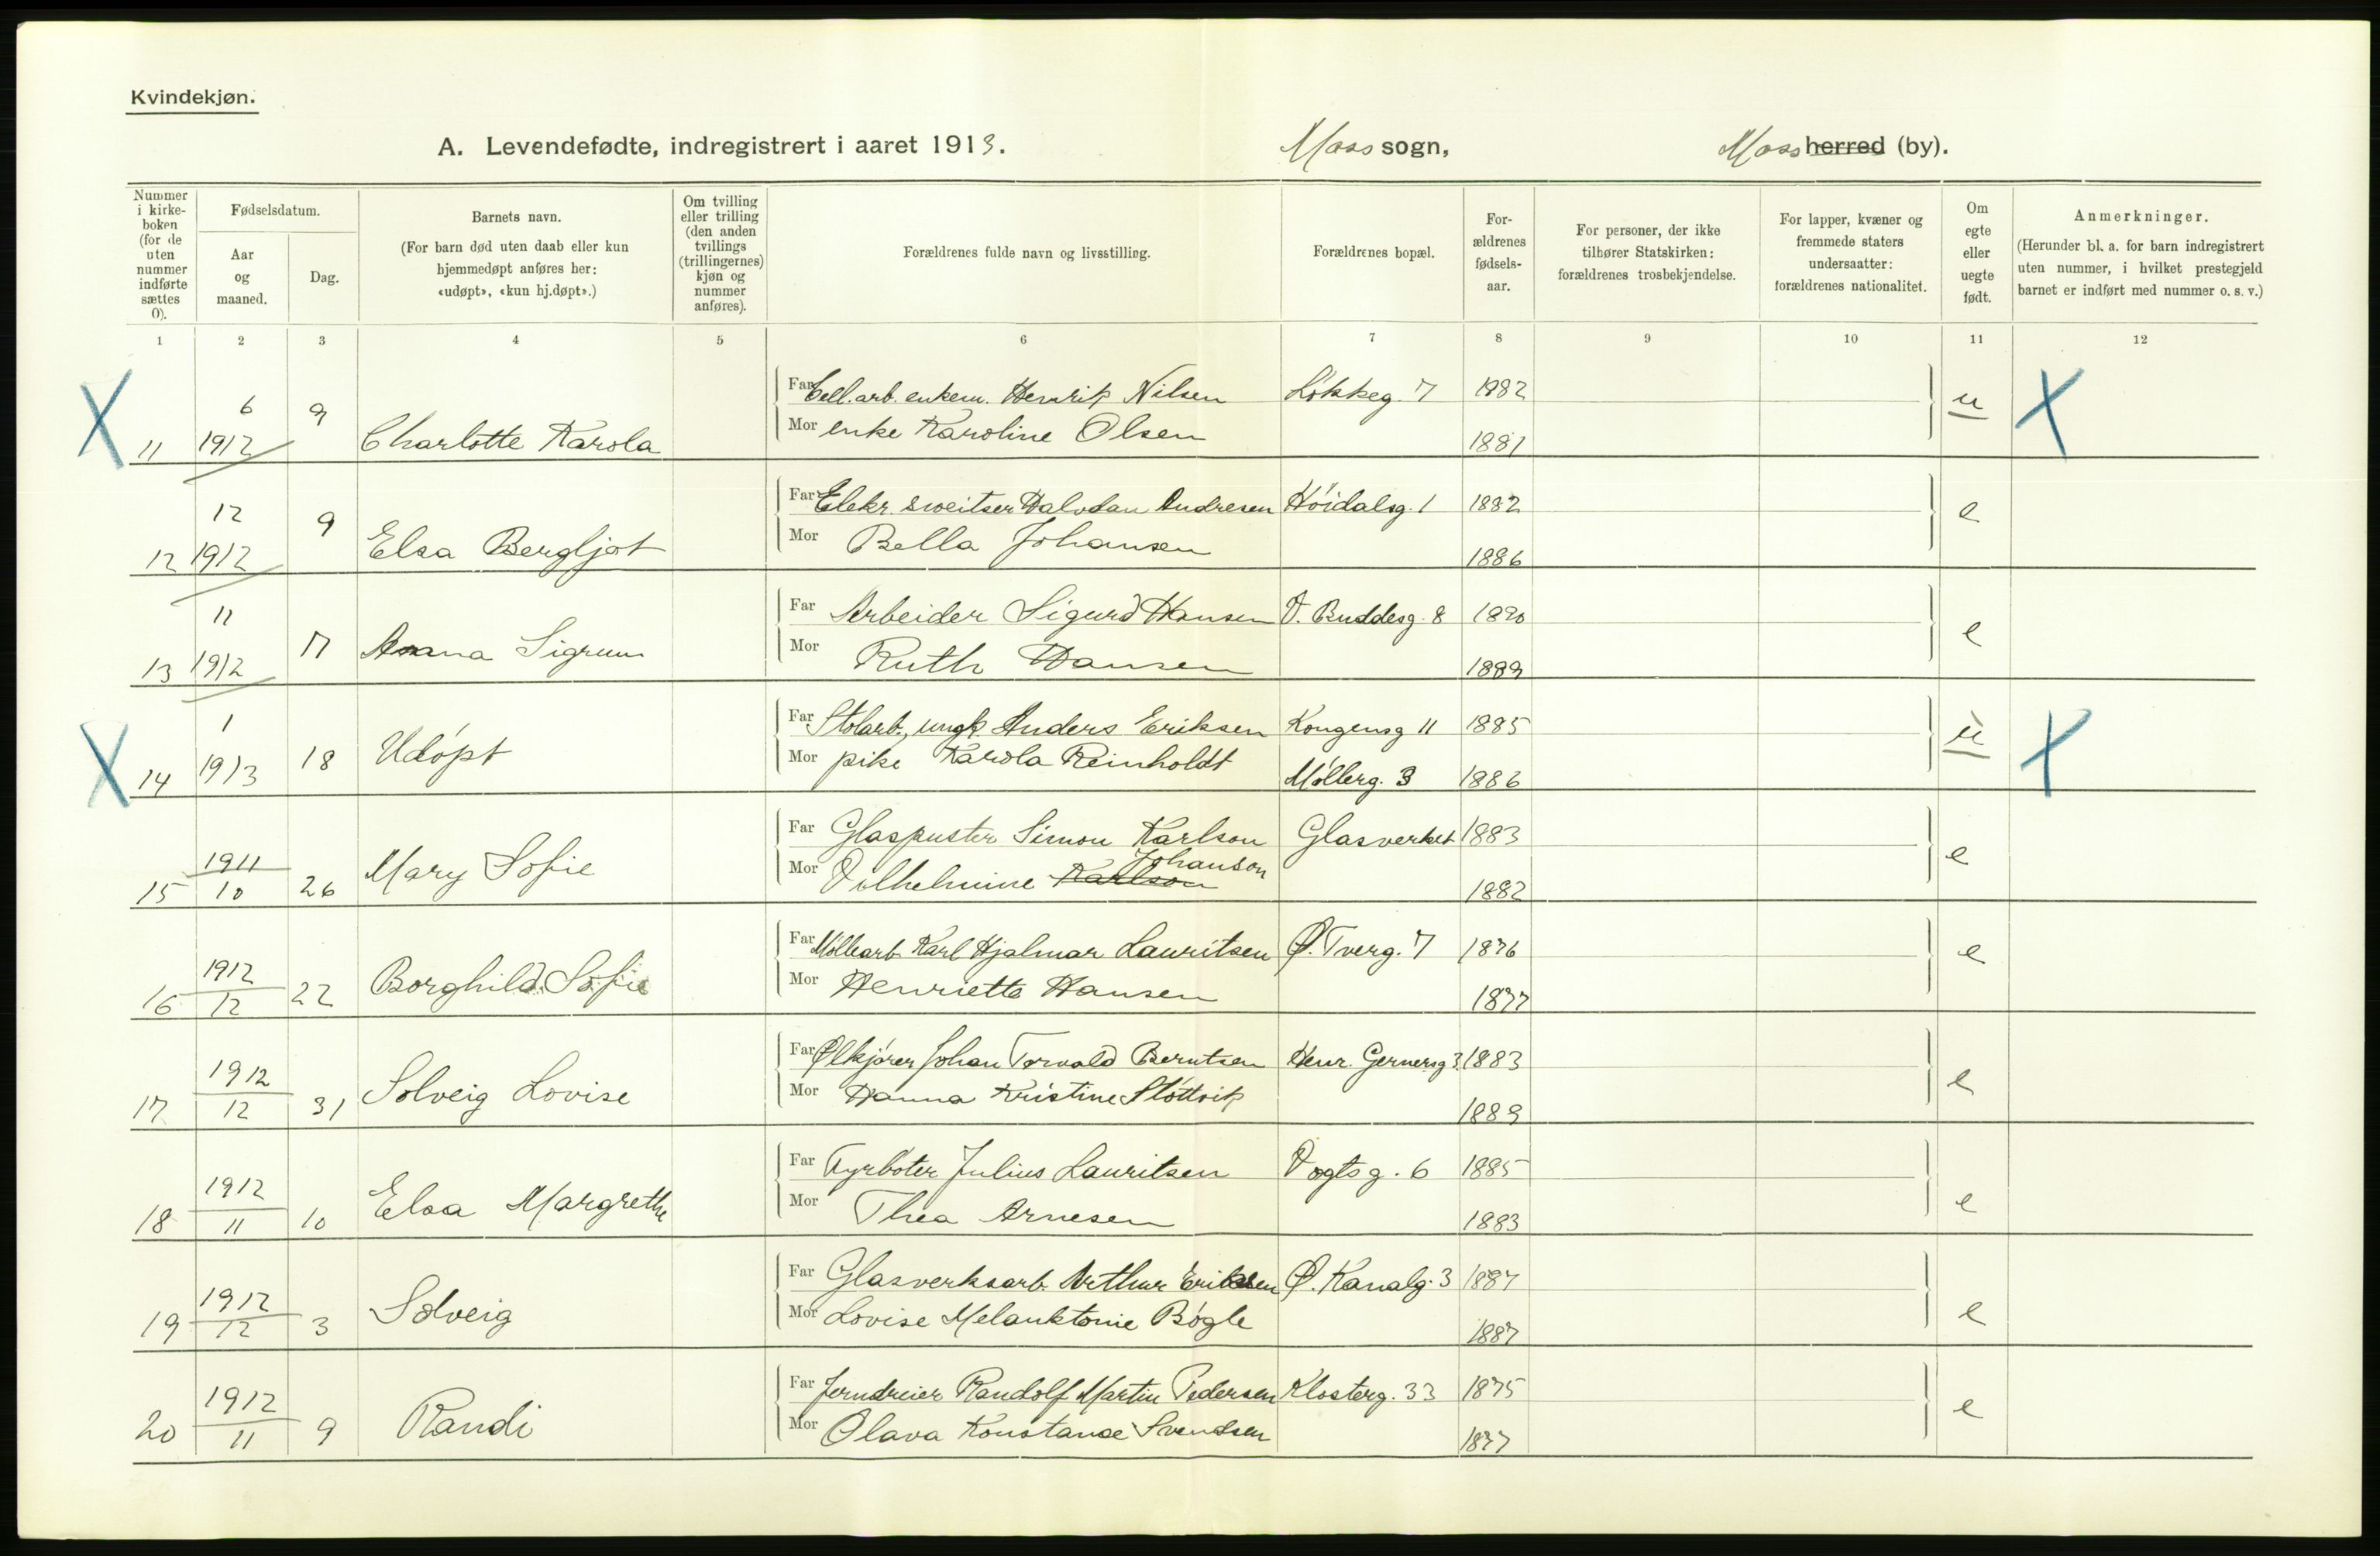 Kvindekjøn.
A. Levendefødte, indregistrert i aaret 1913. Moss sogn, Moss herred (by).
Nummer i kirke-boken (for de uten nummer indførte sættes 0).
Fødselsdatum.
Aar og maaned.
Dag.
Barnets navn.
(For barn død uten daab eller kun hjemmedøpt anføres her: «udøpt», «kun hj.døpt».)
Om tvilling eller trilling (den anden tvillings (trillingernes) kjøn og nummer anføres).
Forældrenes fulde navn og livsstilling.
Forældrenes bopæl.
For-ældrenes fødsels-aar.
For personer, der ikke tilhører Statskirken: forældrenes trosbekjendelse.
For lapper, kvæner og fremmede staters undersaatter: forældrenes nationalitet.
Om egte eller uegte født.
Anmerkninger.
(Herunder bl. a. for barn indregistrert uten nummer, i hvilket prestegjeld barnet er indført med nummer o. s. v.)
1 2 3 4 5 6 7 8 9 10 11 12
X 6 9 Far Cell.arb. enkem. Henrik Nilsen Løkkeg. 7 1882 u X
11 1912 Charlotte Karola Mor enke Karoline Olsen 1881
12 9 Far Elekr. sveitser Halvdan Andresen Høidalsg. 1 1882 e
12 1912 Elsa Bergljot Mor Bella Johansen 1886
11 Far Arbeider Sigurd Hansen V. Buddesg. 8 1890 e
13 1912 17 Anna Sigrun Mor Ruth Hansen 1889
X 1 Far Stolarb., ungk. Anders Eriksen Kongensg 11 1885 u X
14 1913 18 Udøpt Mor pike Karola Reinholdt Møllerg. 3 1886
Far Glaspuster Simon Karlson Glasverket 1883 e
15 1911 10 26 Mary Sofie Mor Vilhelmine Karlson Johanson 1882
Far Møllearb. Karl Hjalmar Lauritsen Ø. Tverg. 7 1876 e
16 1912 12 22 Borghild Sofie Mor Henriette Hansen 1877
Far Ølkjører Johan Torvald Berntsen Henr. Gernersg 3. 1883 e
17 1912 12 31 Solveig Lovise Mor Hanna Kristine Støttvik 1889
Far Fyrbøter Julius Lauritsen Vogtsg. 6 1885 e
18 1912 11 10 Elsa Margrethe Mor Thea Arnesen 1883
Far Glasverksarb. Arthur Eriksen Ø. Kanalg. 3 1887 e
19 1912 12 3 Solveig Mor Lovise Melanktonie Bøgle 1887
Far Jerndreier Randolf Martin Pedersen Klosterg. 33 1875 e
20 1912 11 9 Randi Mor Olava Konstance Svendsen 1877